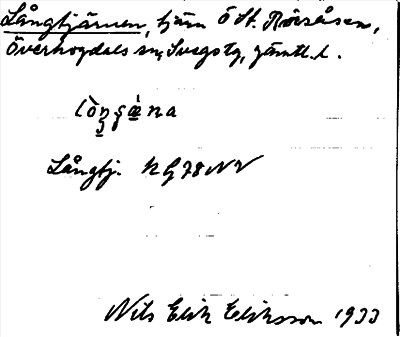 Långtjärnen, tjärn Ö St. Rörsåsen,
Överhogdals sn, Svegs tg, Jämtl. l.
Långtj. NG78NV
Nils Erik Eriksson 1933